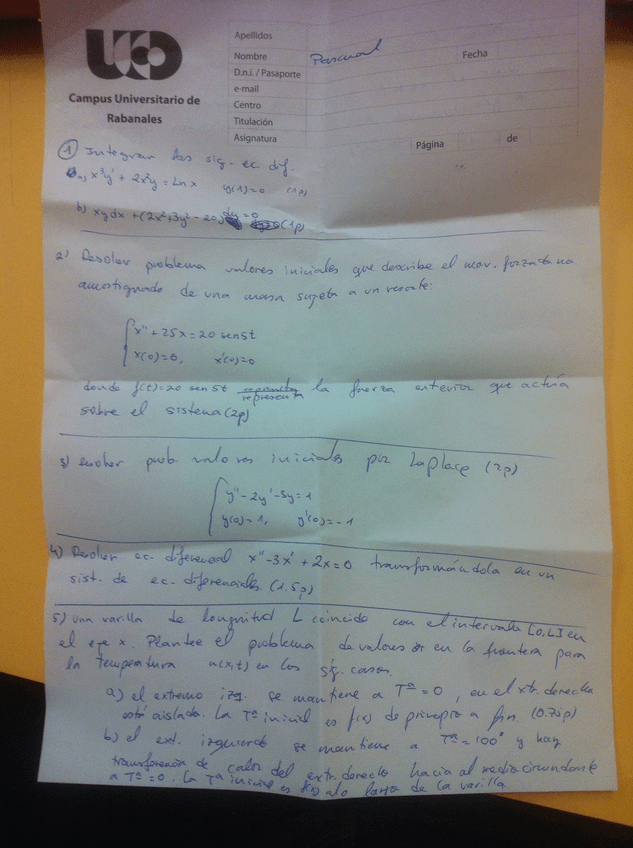 UCO
Campus Universitario de
Rabanales
Apellidos
Nombre Pascual Fecha
D.n.i. / Pasaporte
e-mail
Centro
Titulación
Asignatura
Página de
1 Integrar las sig. ec. dif.
a) x³y' + 2x²y = Ln x y(1)=0 (1p)
b) xy dx + (2x²+3y²-20) dy = 0 (1p)
2) Resolver problema valores iniciales que describe el mov. forzado no
amortiguado de una masa sujeta a un resorte:
x'' + 25x = 20 sen5t
x(0)=0, x'(0)=0
donde f(t)=20 sen 5t representa la fuerza exterior que actúa
sobre el sistema (2p)
3) resolver prob. valores iniciales por Laplace (2p)
y'' - 2y' - 3y = 1
y(0)=1, y'(0)=-1
4) Resolver ec. diferencial x'' - 3x' + 2x = 0 transformándola en un
sist. de ec. diferenciales. (1,5p)
5) Una varilla de longitud L coincide con el intervalo [0,L] en
el eje x. Plantee el problema de valores en la frontera para
la temperatura u(x,t) en los sig. casos.
a) el extremo izq. se mantiene a Tª=0, en el xtr. derecho
está aislado. La Tª inicial es f(x) de principio a fin. (0.75p)
b) el ext. izquierdo se mantiene a Tª=100° y hay
transferencia de calor del extr. derecho hacia al medio circundante
a Tª=0. La Tª inicial es f(x) a lo largo de la varilla